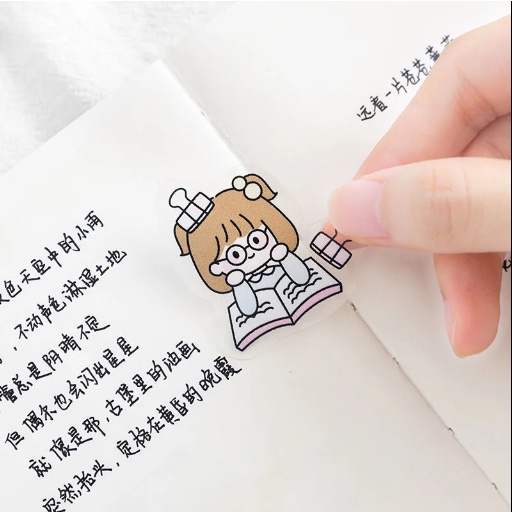 色天空中的小雨
，不动声色淋湿土地
总是阴晴不定
但偶尔也会闪出星星
就像是那，古堡里的油画
忽然抬头，定格在黄昏的晚霞
远看一片苍苍